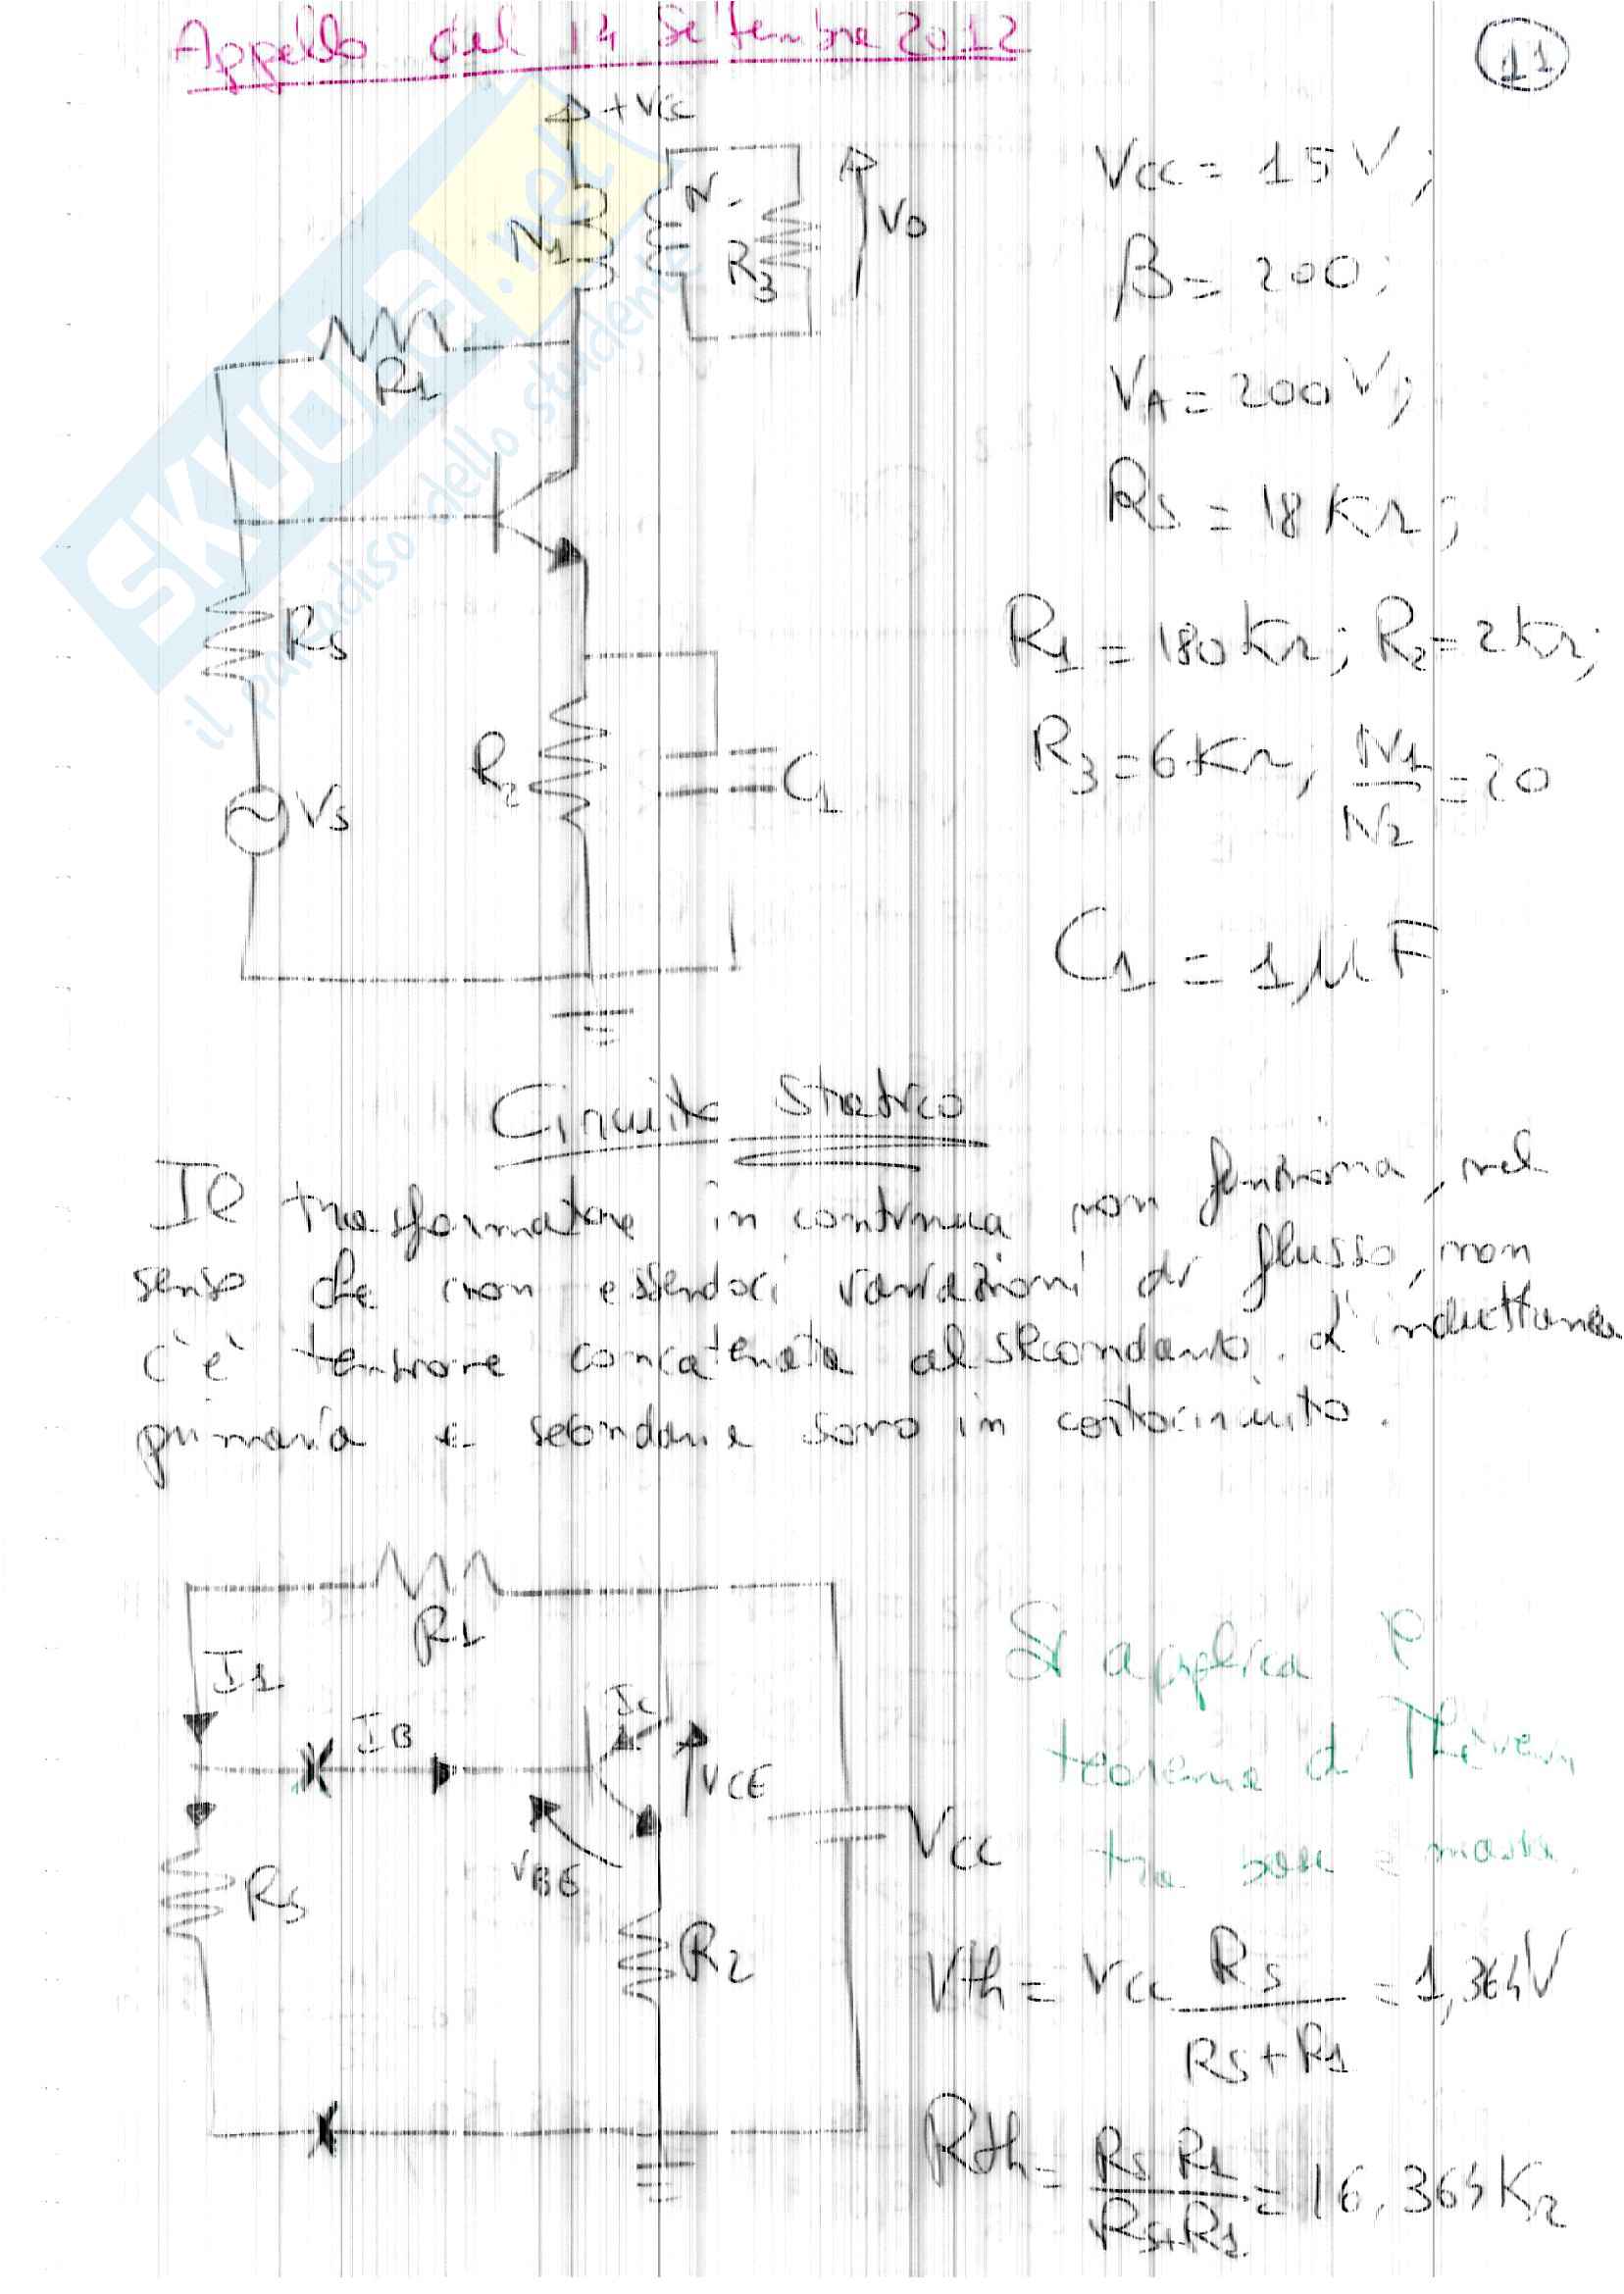 Appello del 14 Settembre 2012
11
+Vcc
N1
N
R3
Vo
R1
Rs
Vs
R2
C1
Vcc = 15V;
β = 200;
VA = 200V;
Rs = 18KΩ;
R1 = 180KΩ; R2 = 2KΩ;
R3 = 6KΩ; N1/N2 = 20
C1 = 1μF.
Circuito Statico
Il trasformatore in continua non funziona, nel
senso che non essendoci variazioni di flusso, non
c'è tensione concatenata al secondario. L'induttanza
primaria e secondaria sono in cortocircuito.
R1
I1
IB
Ic
VCE
VBE
Rs
R2
Vcc
Si applica il
teorema di Thévenin
tra base e massa.
Vth = Vcc Rs/(Rs+R1) = 1,364V
Rth = Rs R1/(Rs+R1) = 16,364KΩ
SKUOLA.net
il paradiso dello studente